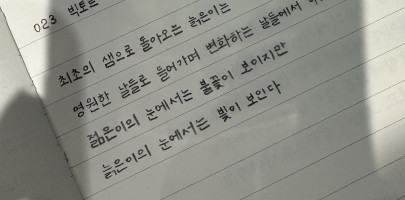 023 빅토르
최초의 샘으로 돌아오는 늙은이는
영원한 날들로 들어가며 변화하는 날들에서
젊은이의 눈에서는 불꽃이 보이지만
늙은이의 눈에서는 빛이 보인다